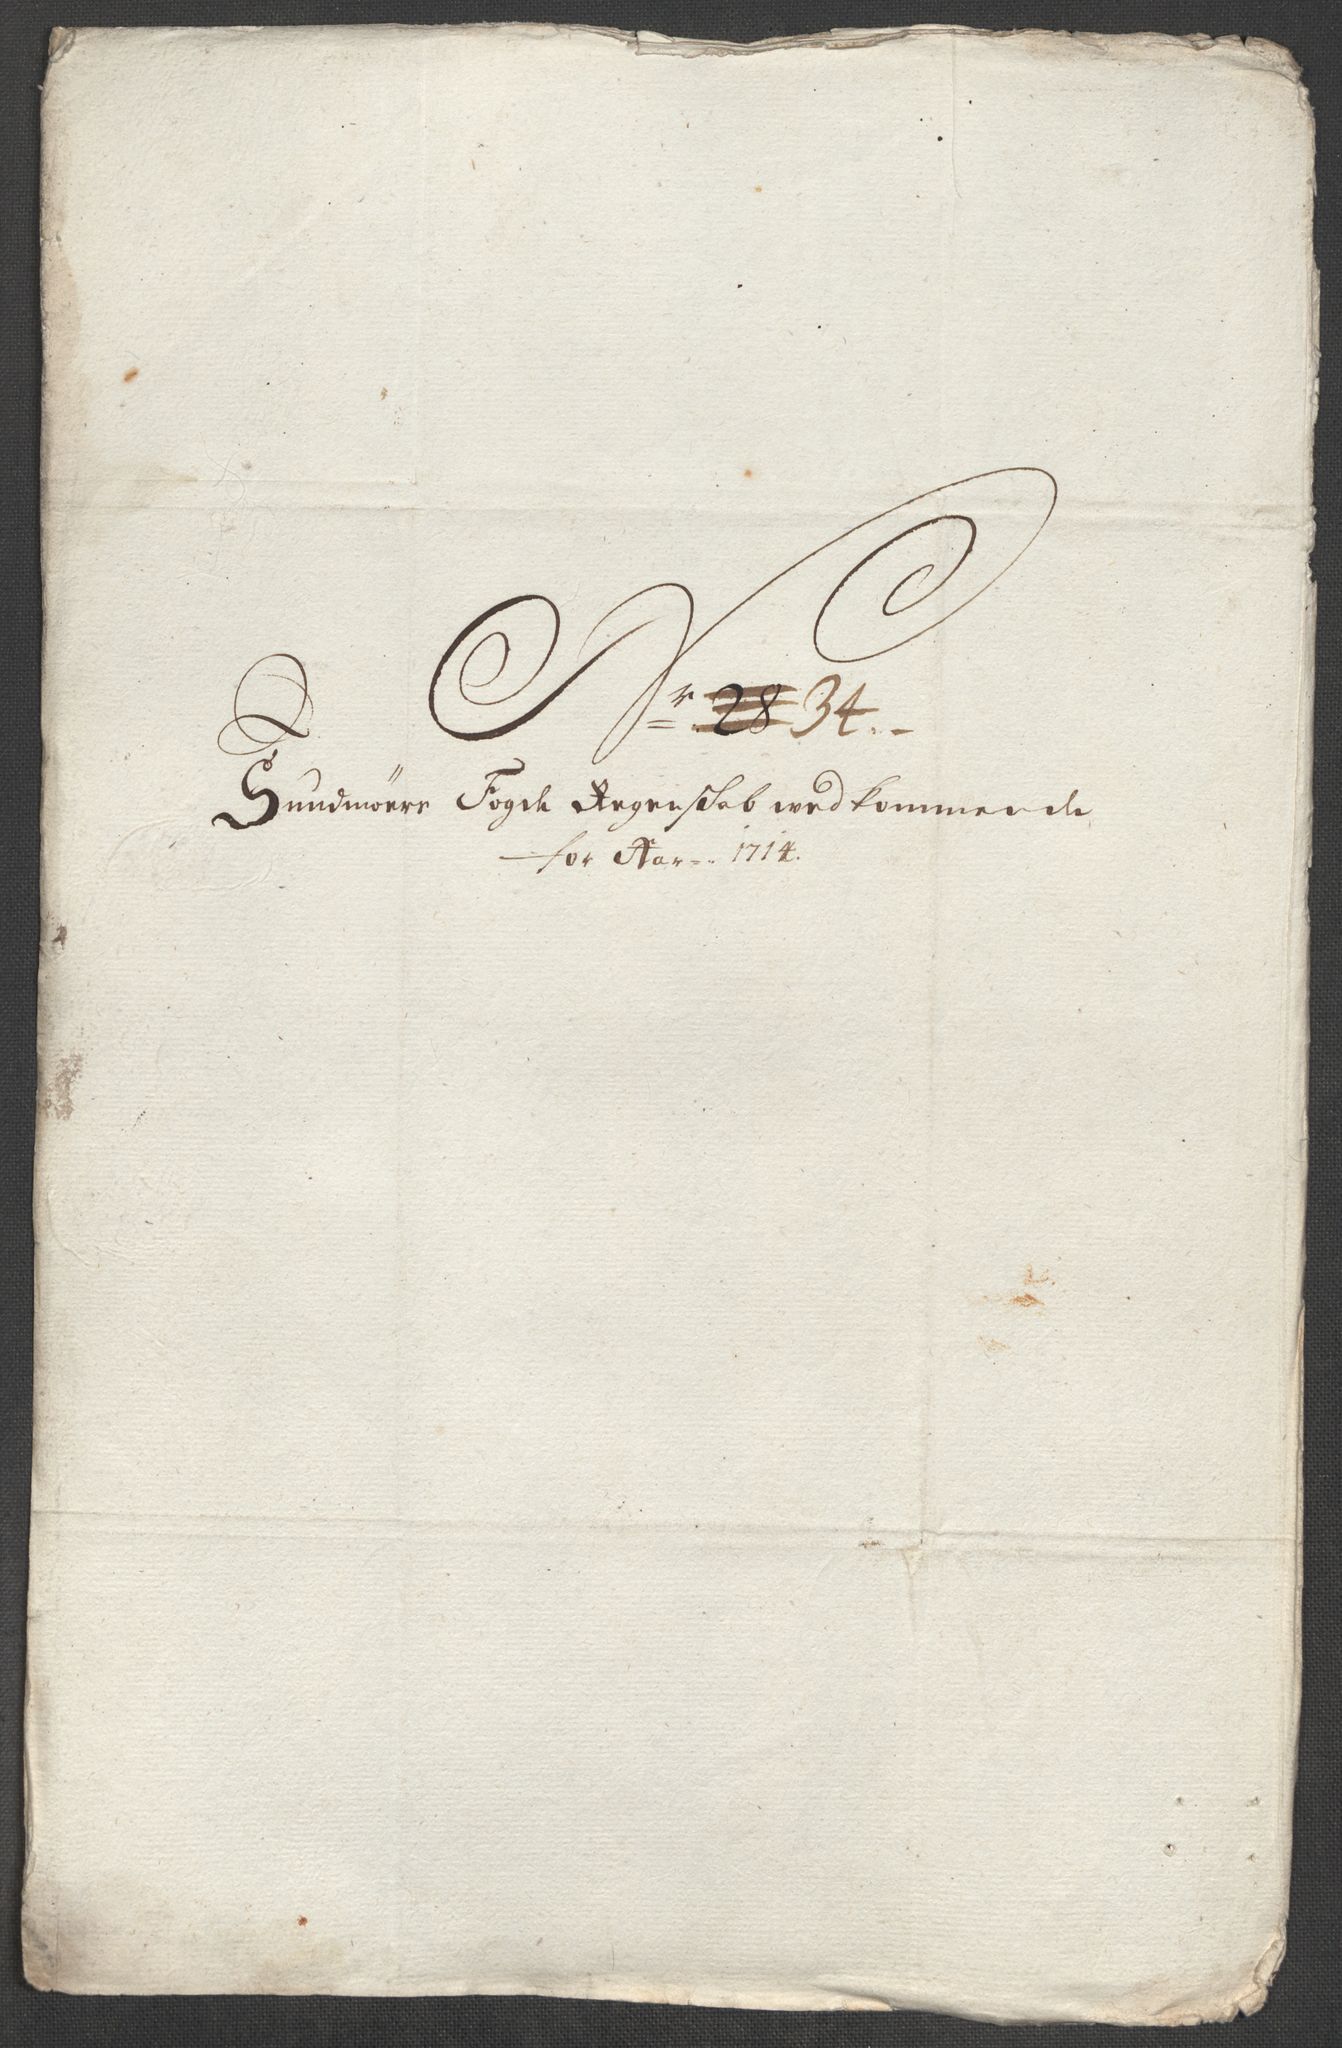 Nr 28 34.
Sundmøers Fogde Regenskab wedkommende
for Aar 1714.